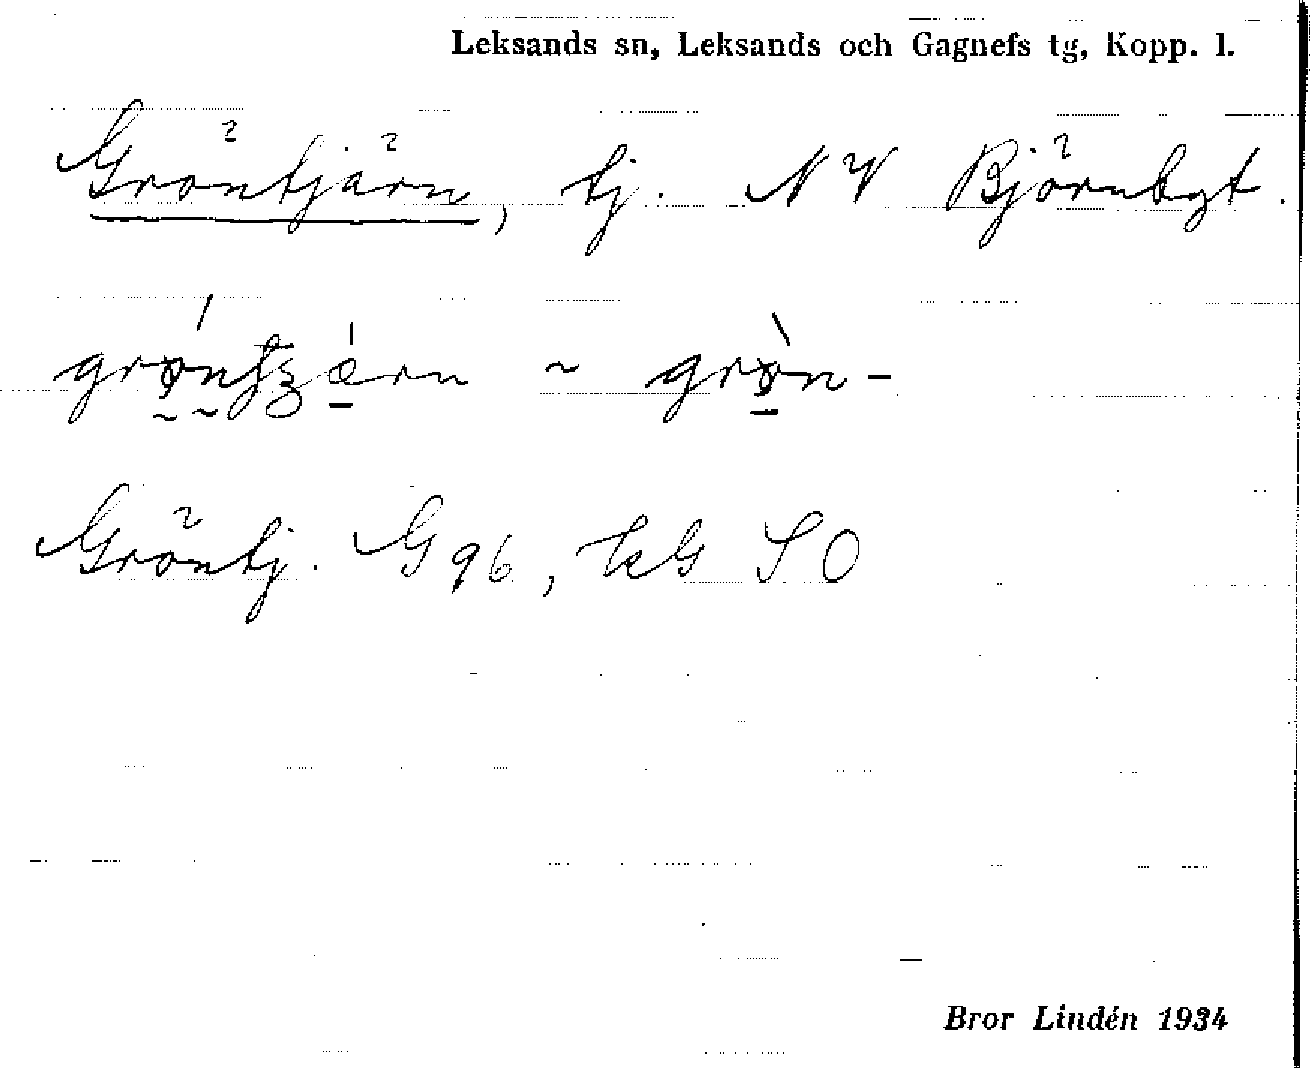 Leksands sn, Leksands och Gagnefs tg, Kopp. l.
Gröntjärn, tj. NV Björnbgt.
~ grøn-
Gröntj. G 96, kG SO
Bror Lindén 1934